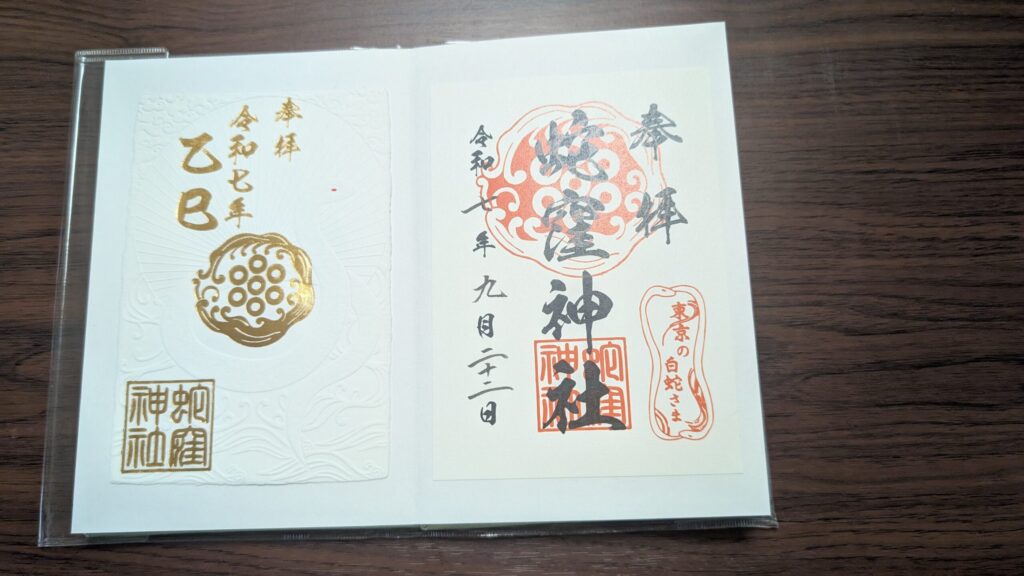 奉拝
蛇窪神社
令和七年九月二十二日
東京の
白蛇さま
蛇窪
神社
奉拝
令和七年
乙巳
蛇窪
神社